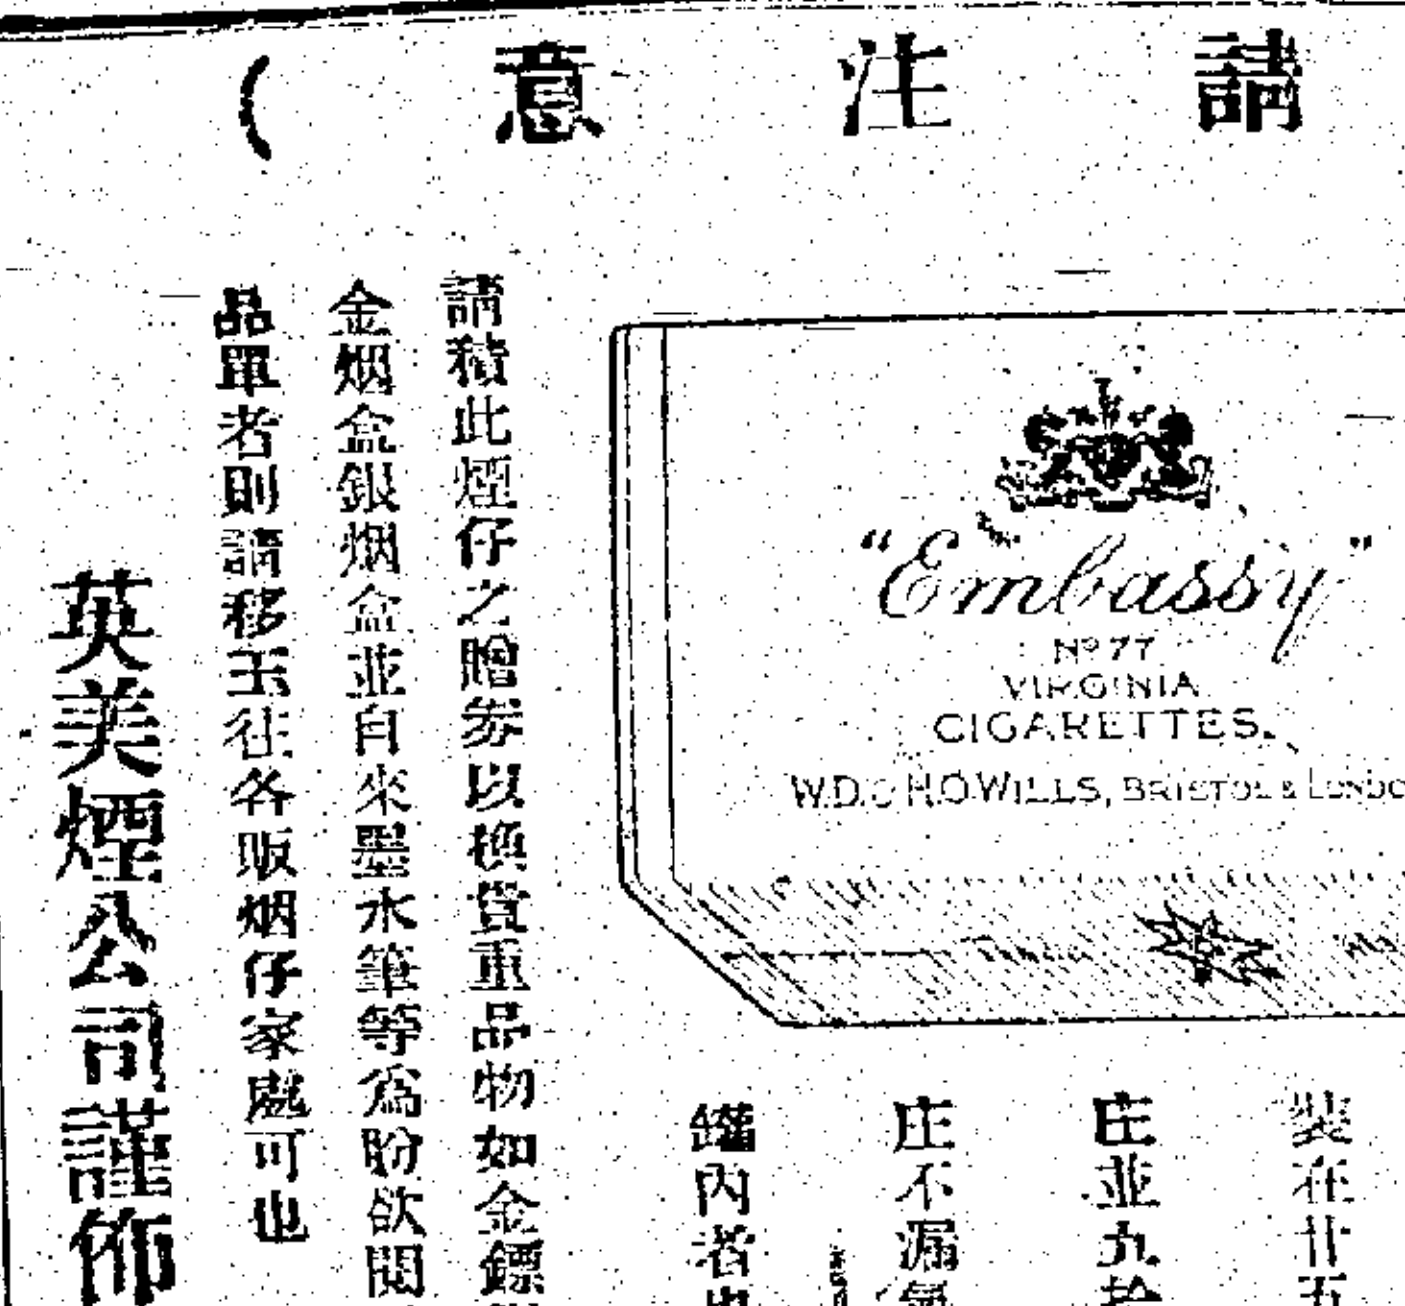 請注意（
"Embassy"
Nº 77
VIRGINIA
CIGARETTES.
W.D. & H.O. WILLS, BRISTOL & LONDO
裝在廿五
庄並九拾
庄不漏氣
罐內者
請積此煙仔之贈券以換貴重品物如金鏢
金烟盒銀烟盒並自來墨水筆等爲盼欲閱
品單者則請移玉往各販烟仔家處可也
英美煙公司謹佈